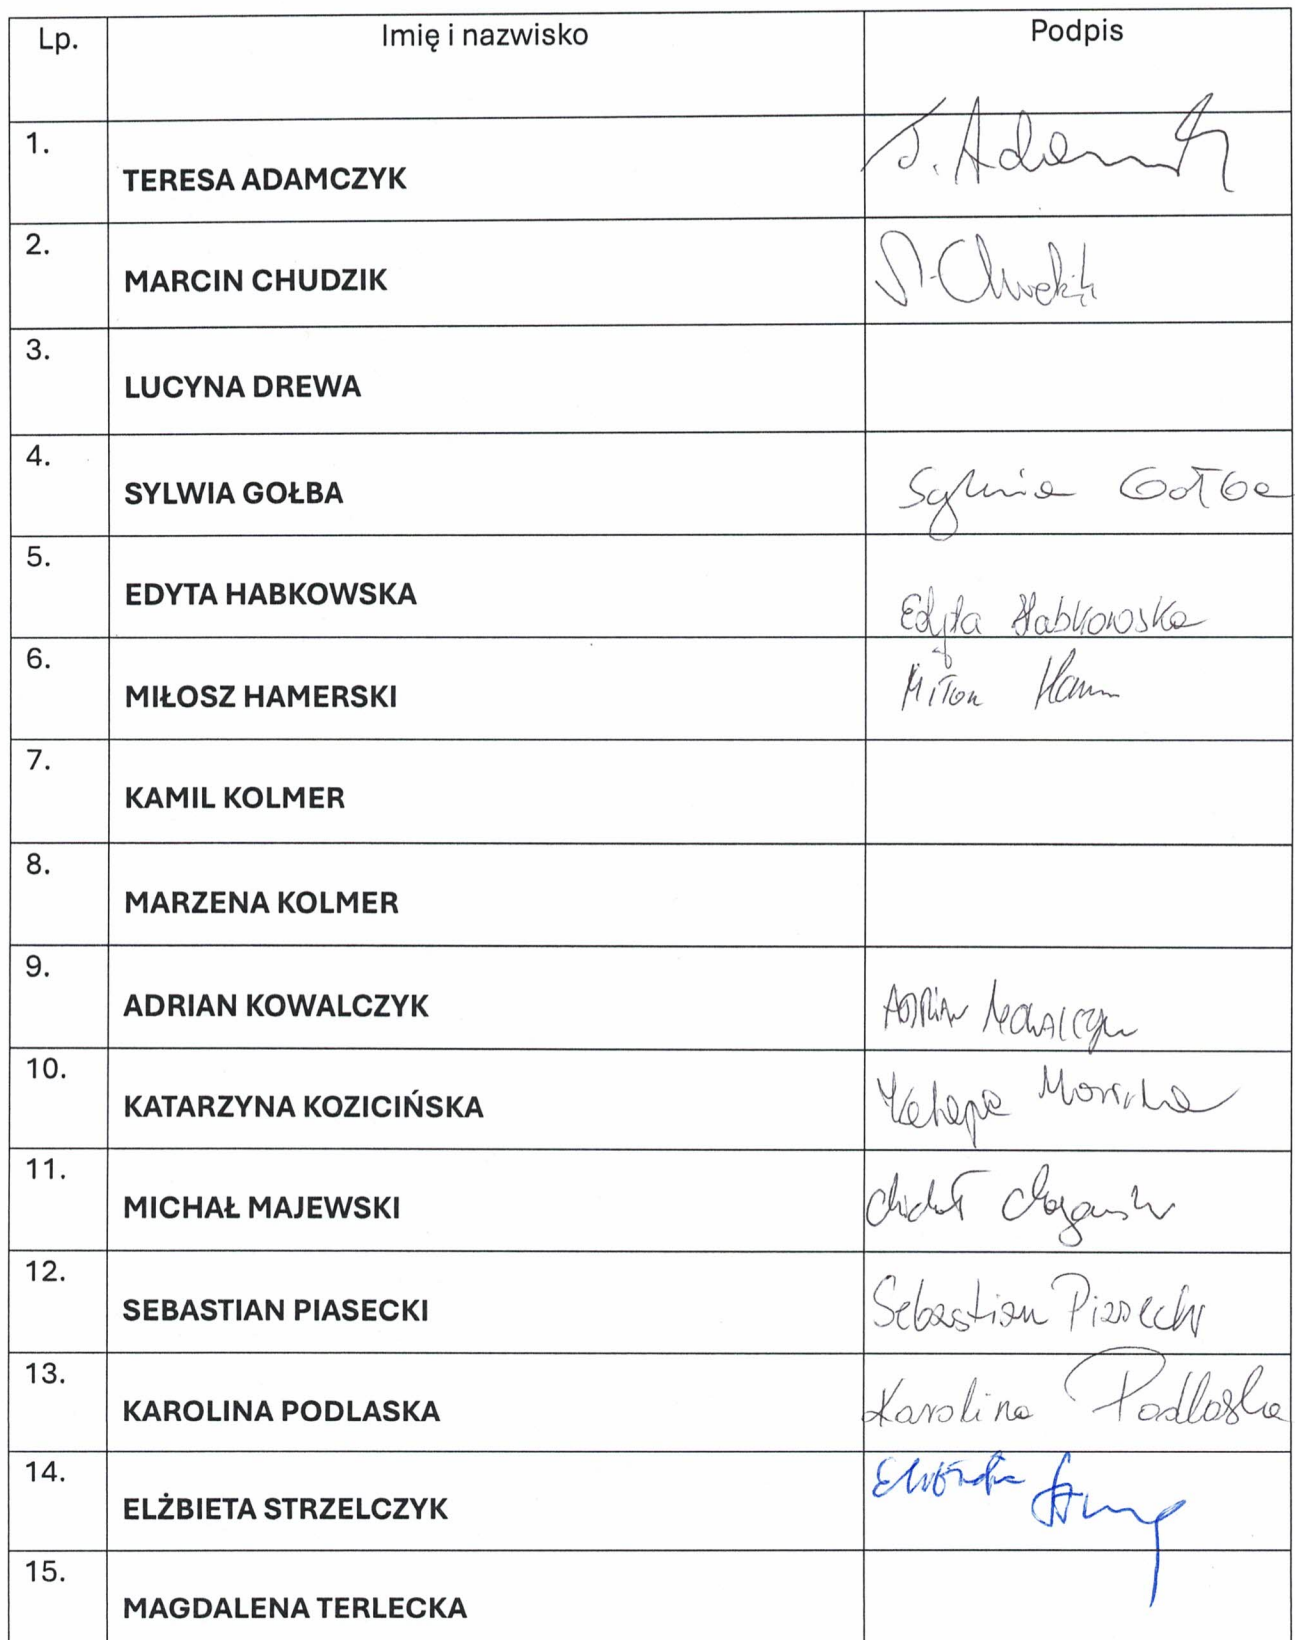 Lp. Imię i nazwisko Podpis
1. TERESA ADAMCZYK T. Adamczyk
2. MARCIN CHUDZIK M. Chudzik
3. LUCYNA DREWA
4. SYLWIA GOŁBA Sylwia Gołba
5. EDYTA HABKOWSKA Edyta Habkowska
6. MIŁOSZ HAMERSKI Miłosz
7. KAMIL KOLMER
8. MARZENA KOLMER
9. ADRIAN KOWALCZYK Adrian Kowalczyk
10. KATARZYNA KOZICIŃSKA
11. MICHAŁ MAJEWSKI Michał Majewski
12. SEBASTIAN PIASECKI Sebastian Piasecki
13. KAROLINA PODLASKA Karolina Podlaska
14. ELŻBIETA STRZELCZYK Elżbieta
15. MAGDALENA TERLECKA